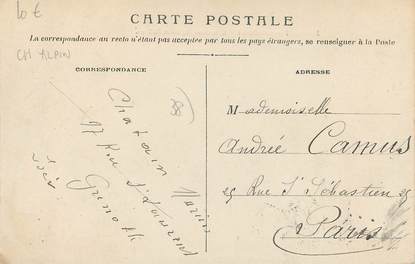 10 €
CARTE POSTALE
La correspondance au recto n'étant pas acceptée par tous les pays étrangers, se renseigner à la Poste
CH ALPIN
CORRESPONDANCE
ADRESSE
38
Chatain
17 Rue St Laurent
Mademoiselle
Andrée Camus
25 Rue St Sébastien 25
Paris